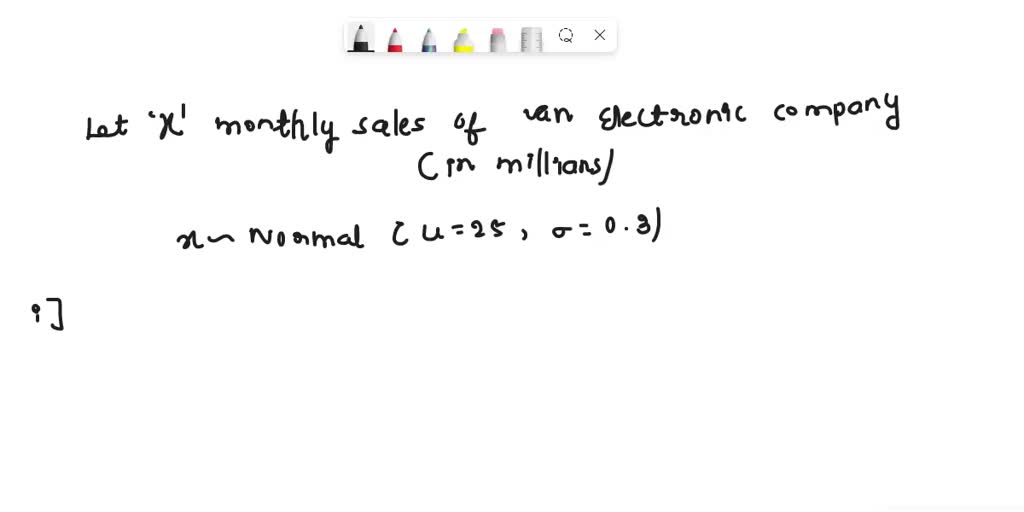 Let 'x' monthly sales of van Electronic company
(in millians)
x ~ Normal (u = 25, σ = 0.3)
i]